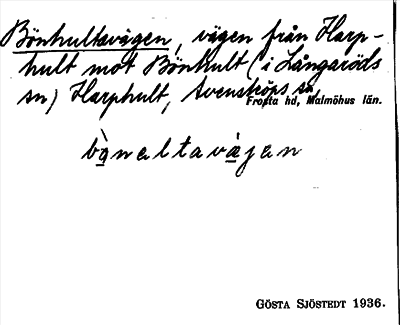 Bönhultavägen, vägen från Harp-
hult mot Bönhult (i Långaröds
sn) Harphult, Svensköps sn,
Frosta hd, Malmöhus län.
bo̱̊̀neltavä̱̀jen
GÖSTA SJÖSTEDT 1936.